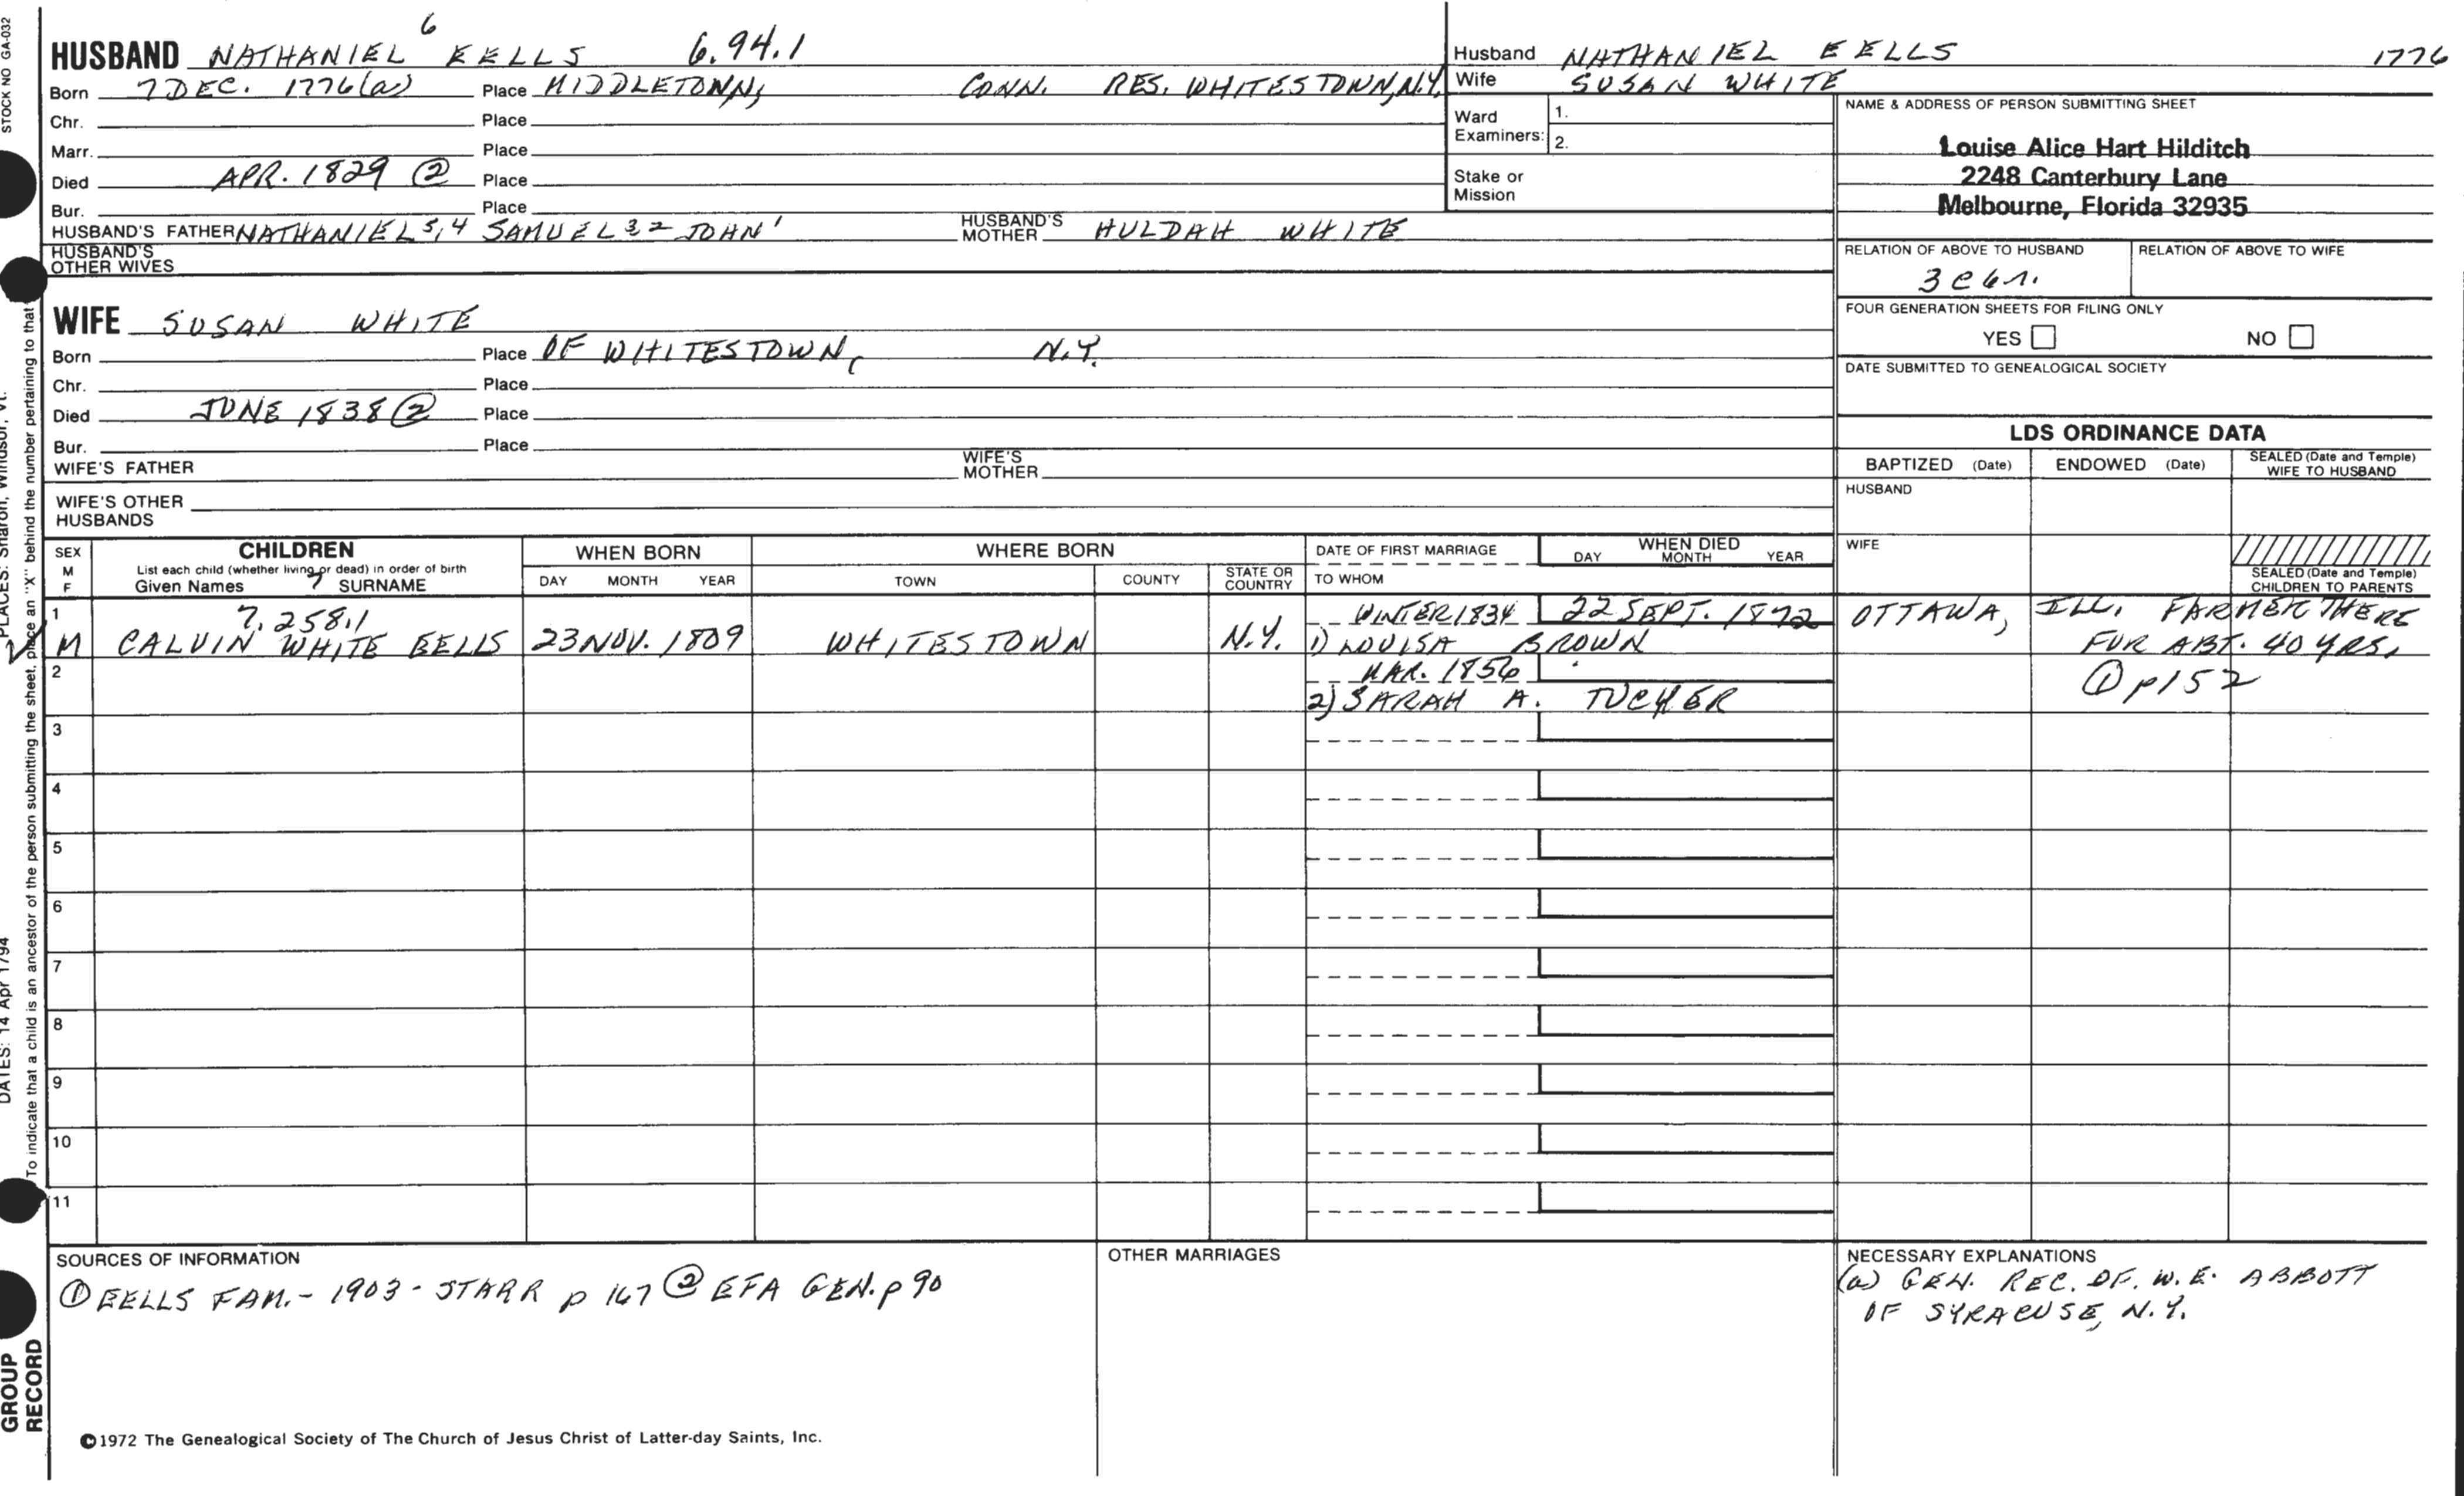 STOCK NO GA-032
HUSBAND NATHANIEL 6 EELLS 6.94.1
Born 7 DEC. 1776 (a) Place MIDDLETOWN, CONN. RES. WHITESTOWN, N.Y.
Chr. Place
Marr. Place
Died APR. 1829 ② Place
Bur. Place
HUSBAND'S FATHER NATHANIEL 5,4 SAMUEL 3 2 JOHN 1 HUSBAND'S MOTHER HULDAH WHITE
HUSBAND'S OTHER WIVES
Husband NATHANIEL EELLS 1776
Wife SUSAN WHITE
Ward Examiners: 1.
2.
Stake or Mission
NAME & ADDRESS OF PERSON SUBMITTING SHEET
Louise Alice Hart Hilditch
2248 Canterbury Lane
Melbourne, Florida 32935
RELATION OF ABOVE TO HUSBAND RELATION OF ABOVE TO WIFE
3 c 6 r.
FOUR GENERATION SHEETS FOR FILING ONLY
YES NO
DATE SUBMITTED TO GENEALOGICAL SOCIETY
WIFE SUSAN WHITE
Born Place OF WHITESTOWN, N.Y.
Chr. Place
Died JUNE 1838 ② Place
Bur. Place
WIFE'S FATHER WIFE'S MOTHER
WIFE'S OTHER HUSBANDS
LDS ORDINANCE DATA
BAPTIZED (Date) ENDOWED (Date) SEALED (Date and Temple) WIFE TO HUSBAND
HUSBAND
WIFE
SEALED (Date and Temple) CHILDREN TO PARENTS
SEX M F
CHILDREN
List each child (whether living or dead) in order of birth
Given Names 7 SURNAME
WHEN BORN
DAY MONTH YEAR
WHERE BORN
TOWN COUNTY STATE OR COUNTRY
DATE OF FIRST MARRIAGE
TO WHOM
WHEN DIED
DAY MONTH YEAR
1 7.258.1 WINTER 1834 22 SEPT. 1872 OTTAWA, ILL. FARMER THERE
M CALVIN WHITE EELLS 23 NOV. 1809 WHITESTOWN N.Y. 1) LOUISA BROWN FOR ABT. 40 YRS.
2 MAR. 1856 ① p 152
2) SARAH A. TUCKER
3
4
5
6
7
8
9
10
11
SOURCES OF INFORMATION
① EELLS FAM. - 1903 - STARR p 167 ② EFA GEN. p 90
OTHER MARRIAGES
NECESSARY EXPLANATIONS
(a) GEN. REC. OF. W. E. ABBOTT
OF SYRACUSE, N.Y.
©1972 The Genealogical Society of The Church of Jesus Christ of Latter-day Saints, Inc.
PLACES: Sharon, Windsor, Vt.
To indicate that a child is an ancestor of the person submitting the sheet, place an "X" behind the number pertaining to that
DATES: 14 Apr 1794
GROUP
RECORD